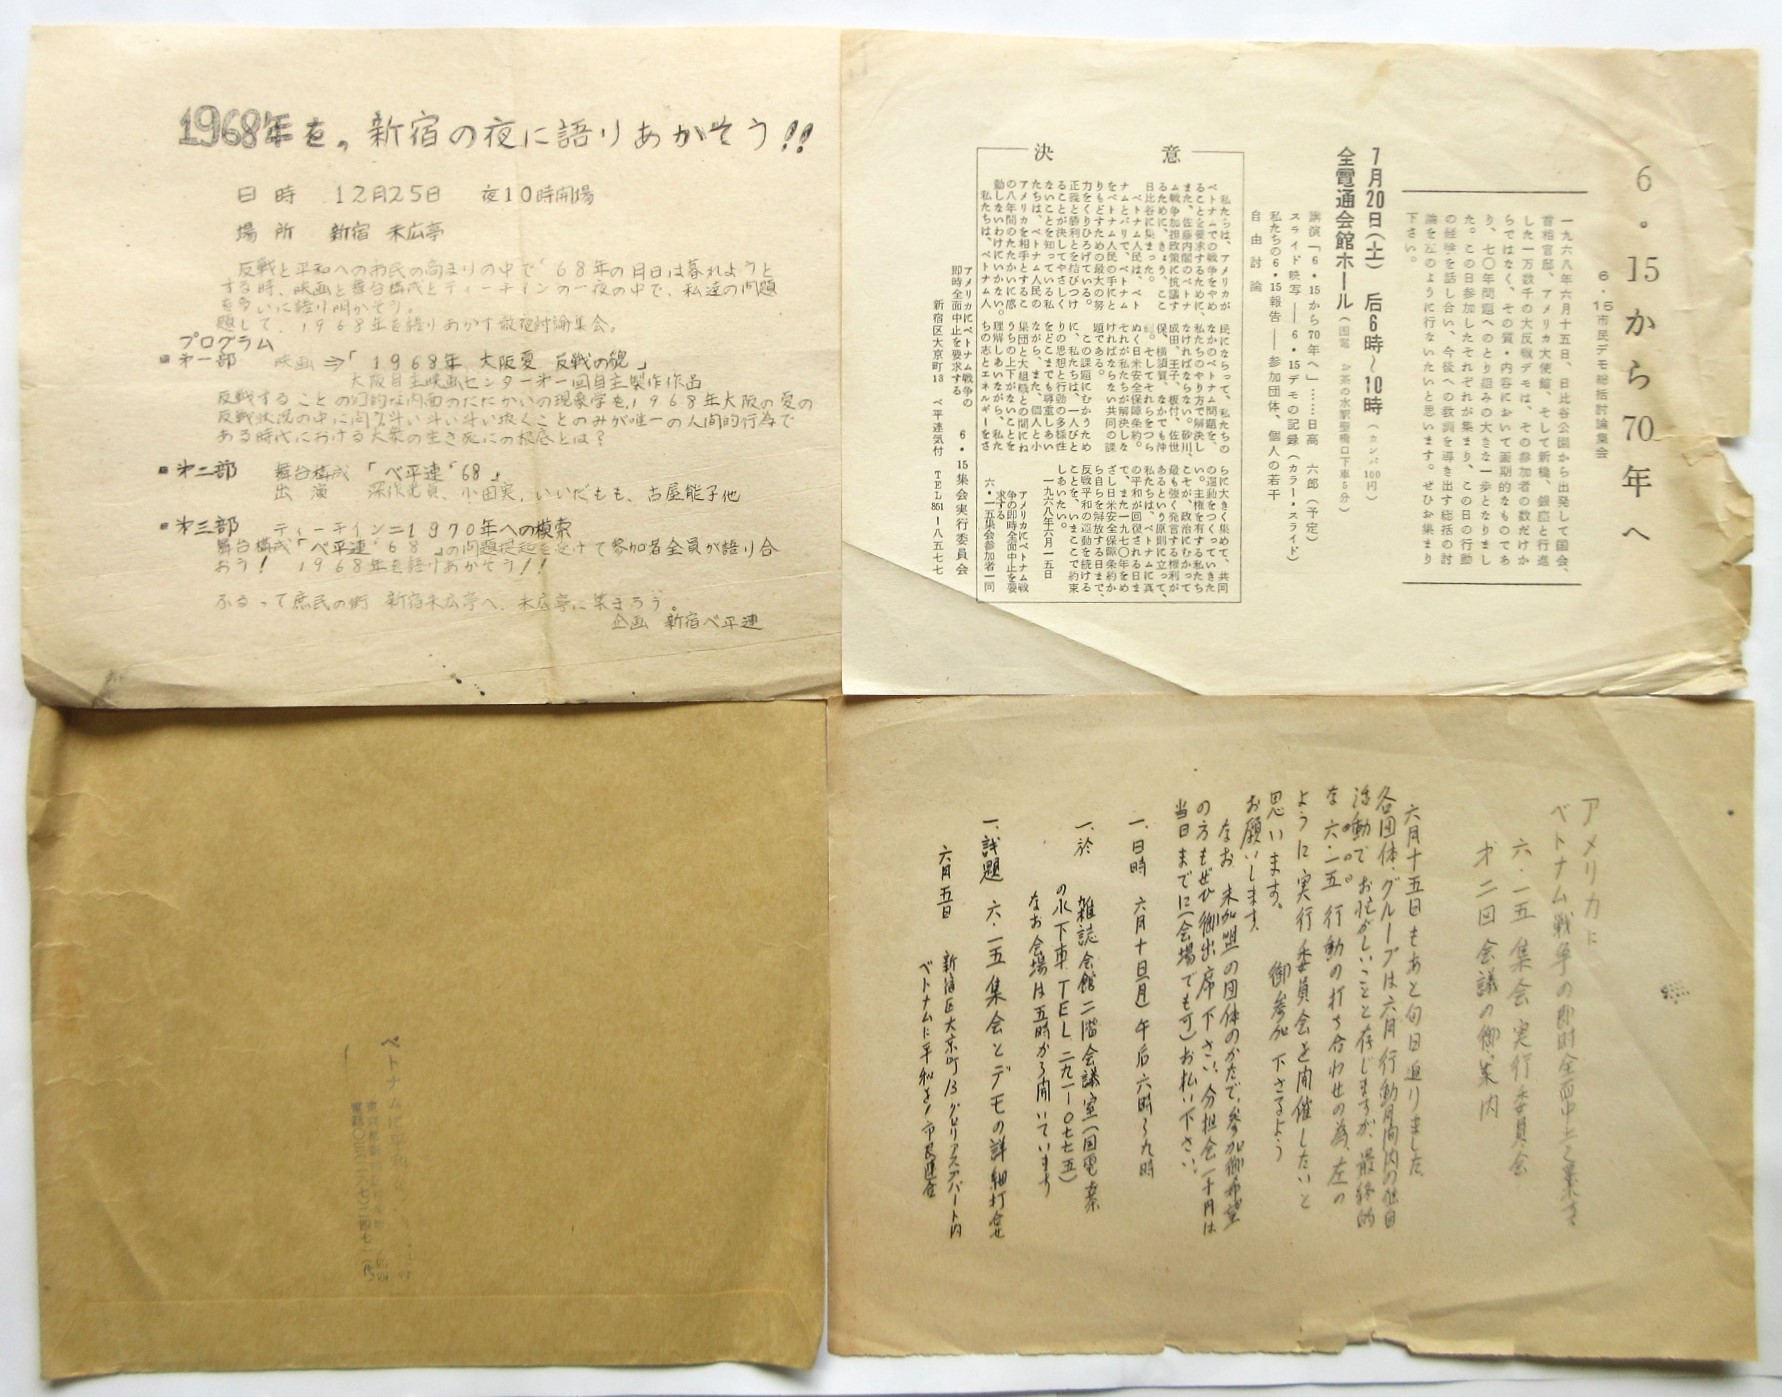 1968年を、新宿の夜に語りあかそう!!
日時 12月25日 夜10時開場
場所 新宿 末広亭
反戦と平和への市民の高まりの中で'68年の月日は暮れようと
する時、映画と舞台構成とティーチインの一夜の中で、私達の問題
を多いに語り明かそう。
題して、1968年を語りあかす徹夜討論集会。
プログラム
第一部 映画⇒「1968年 大阪夏 反戦の貌」
大阪自主映画センター第一回自主製作作品
反戦することの幻的な内面のたたかいの現象学を、1968年大阪の夏の
反戦状況の中に問
ある時代における大衆の生き死にの根底とは?
第二部 舞台構成「ベ平連'68」
出演 深作光貞、小田実、いいだもも、古屋能子他
第三部 ティーチイン=1970年への模索
舞台構成「ベ平連'68」の問題提起を受けて参加者全員が語り合
おう! 1968年を語りあかそう!!
ふるって庶民の街 新宿末広亭へ、末広亭に集まろう。
企画 新宿ベ平連
6・15から70年へ
6・15市民デモ総括討論集会
一九六八年六月十五日、日比谷公園から出発して国会、
首相官邸、アメリカ大使館、そして新橋、銀座と行進
した一万数千の大反戦デモは、その参加者の数だけか
らではなく、その質・内容において画期的なものであ
り、七〇年問題へのとり組みの大きな一歩となりまし
た。この日参加したそれぞれが集まり、この日の行動
の経験を話し合い、今後への教訓を導き出す総括の討
論を左のように行ないたいと思います。ぜひお集まり
下さい。
7月20日(土) 后6時〜10時(カンパ100円)
全電通会館ホール(国電 お茶の水駅聖橋口下車5分)
講演「6・15から70年へ」……日高 六郎(予定)
スライド映写——6・15デモの記録(カラー・スライド)
私たちの6・15報告——参加団体、個人の若干
自由討論
決意
私たちは、アメリカが
ベトナムでの戦争をやめ
ることを要求するために、
また、佐藤内閣のベトナ
ム戦争加担政策に抗議す
るために、きょう、ここ
日比谷に集まった。
ベトナム人民は、ベト
ナムとパリで、ベトナム
をベトナム人民の手にと
りもどすための最大の努
力をくりひろげている。
正義と勝利とを結びつけ
ることが決してやさしく
ないことを知っている私
たちは、ベトナム人民の
アメリカを相手とするこ
の八年間のたたかいに感
動しないわけにいかない。
私たちは、ベトナム人
民にならって、私たちの
なかのベトナム問題を、
私たちのやり方で解決し
なければならない。砂川、
成田、王子、板付、佐世
保、横須賀、なかでも沖
縄。そしてそれらをつら
ぬく日米安全保障条約。
それが私たちが解決しな
ければならない共同の課
題である。
この課題にむかうため
に、私たちは、一人びと
りの思想と行動の多様性
をどこまでも尊重しあい
ながら、また、個人と小
集団と大組織との間にね
うちの上下がないことを
理解しあいながら、私た
ちの志とエネルギーをさ
らに大きく集めて、共同
の運動をつくっていきた
い。主権を有する私たち
こそが、政治にむかって
最も強く発言する権利が
あるという原則に立って、
私たちは、ベトナムに真
の平和が回復される日ま
で、また一九七〇年をめ
ざし日米安全保障条約か
ら自らを解放する日まで、
反戦平和の運動を続ける
ことを、いまここで約束
しあいたい。
一九六八年六月一五日
アメリカにベトナム戦
争の即時全面中止を要
求する
六・一五集会参加者一同
アメリカにベトナム戦争の
即時全面中止を要求する 6・15集会実行委員会
新宿区大京町13 ベ平連気付 TEL 351-八五七七
アメリカに
ベトナム戦争の即時全面中止を要求する
六・一五集会実行委員会
才二回会議の御案内
六月十五日もあと旬日に迫りました。
各団体・グループは六月行動月間内の独自
活動でお忙がしいことと存じますが、最終的
な六・一五行動の打ち合わせの為、左の
ように実行委員会を開催したいと
思います。御参加下さるよう
お願いします。
なお未加盟の団体のかたで、参加御希望
の方もぜひ御出席下さい。分担金一千円は
当日までに(会場でも可)お払い下さい。
一、日時 六月十日(月)午后六時〜九時
一、於 雑誌会館二階会議室(国電お茶
の水下車 TEL 二九一-〇七七五)
なお会場は五時から開いています
一、議題 六・一五集会とデモの詳細打合せ
六月五日 新宿区大京町13
ベトナムに平和を!市民連合